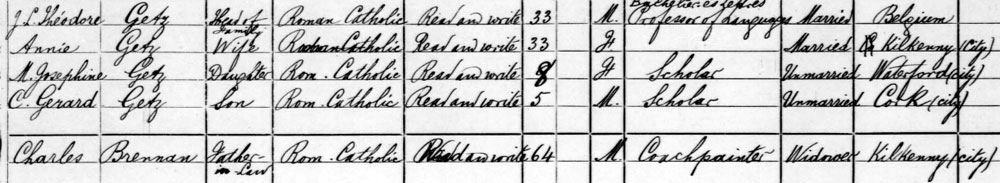 J. L. Théodore Getz Head of Family Roman Catholic Read and write 33 M. Bachelier-ès-lettres Professor of Languages Married Belgium
Annie Getz Wife Roman Catholic Read and write 33 F Married Kilkenny (City)
M. Josephine Getz Daughter Rom. Catholic Read and write 8 F Scholar Unmarried Waterford (city)
C. Gerard Getz Son Rom. Catholic Read and write 5 M. Scholar Unmarried Cork (city)
Charles Brennan Father-in-Law Rom. Catholic Read and write 64 M. Coachpainter Widower Kilkenny (city)